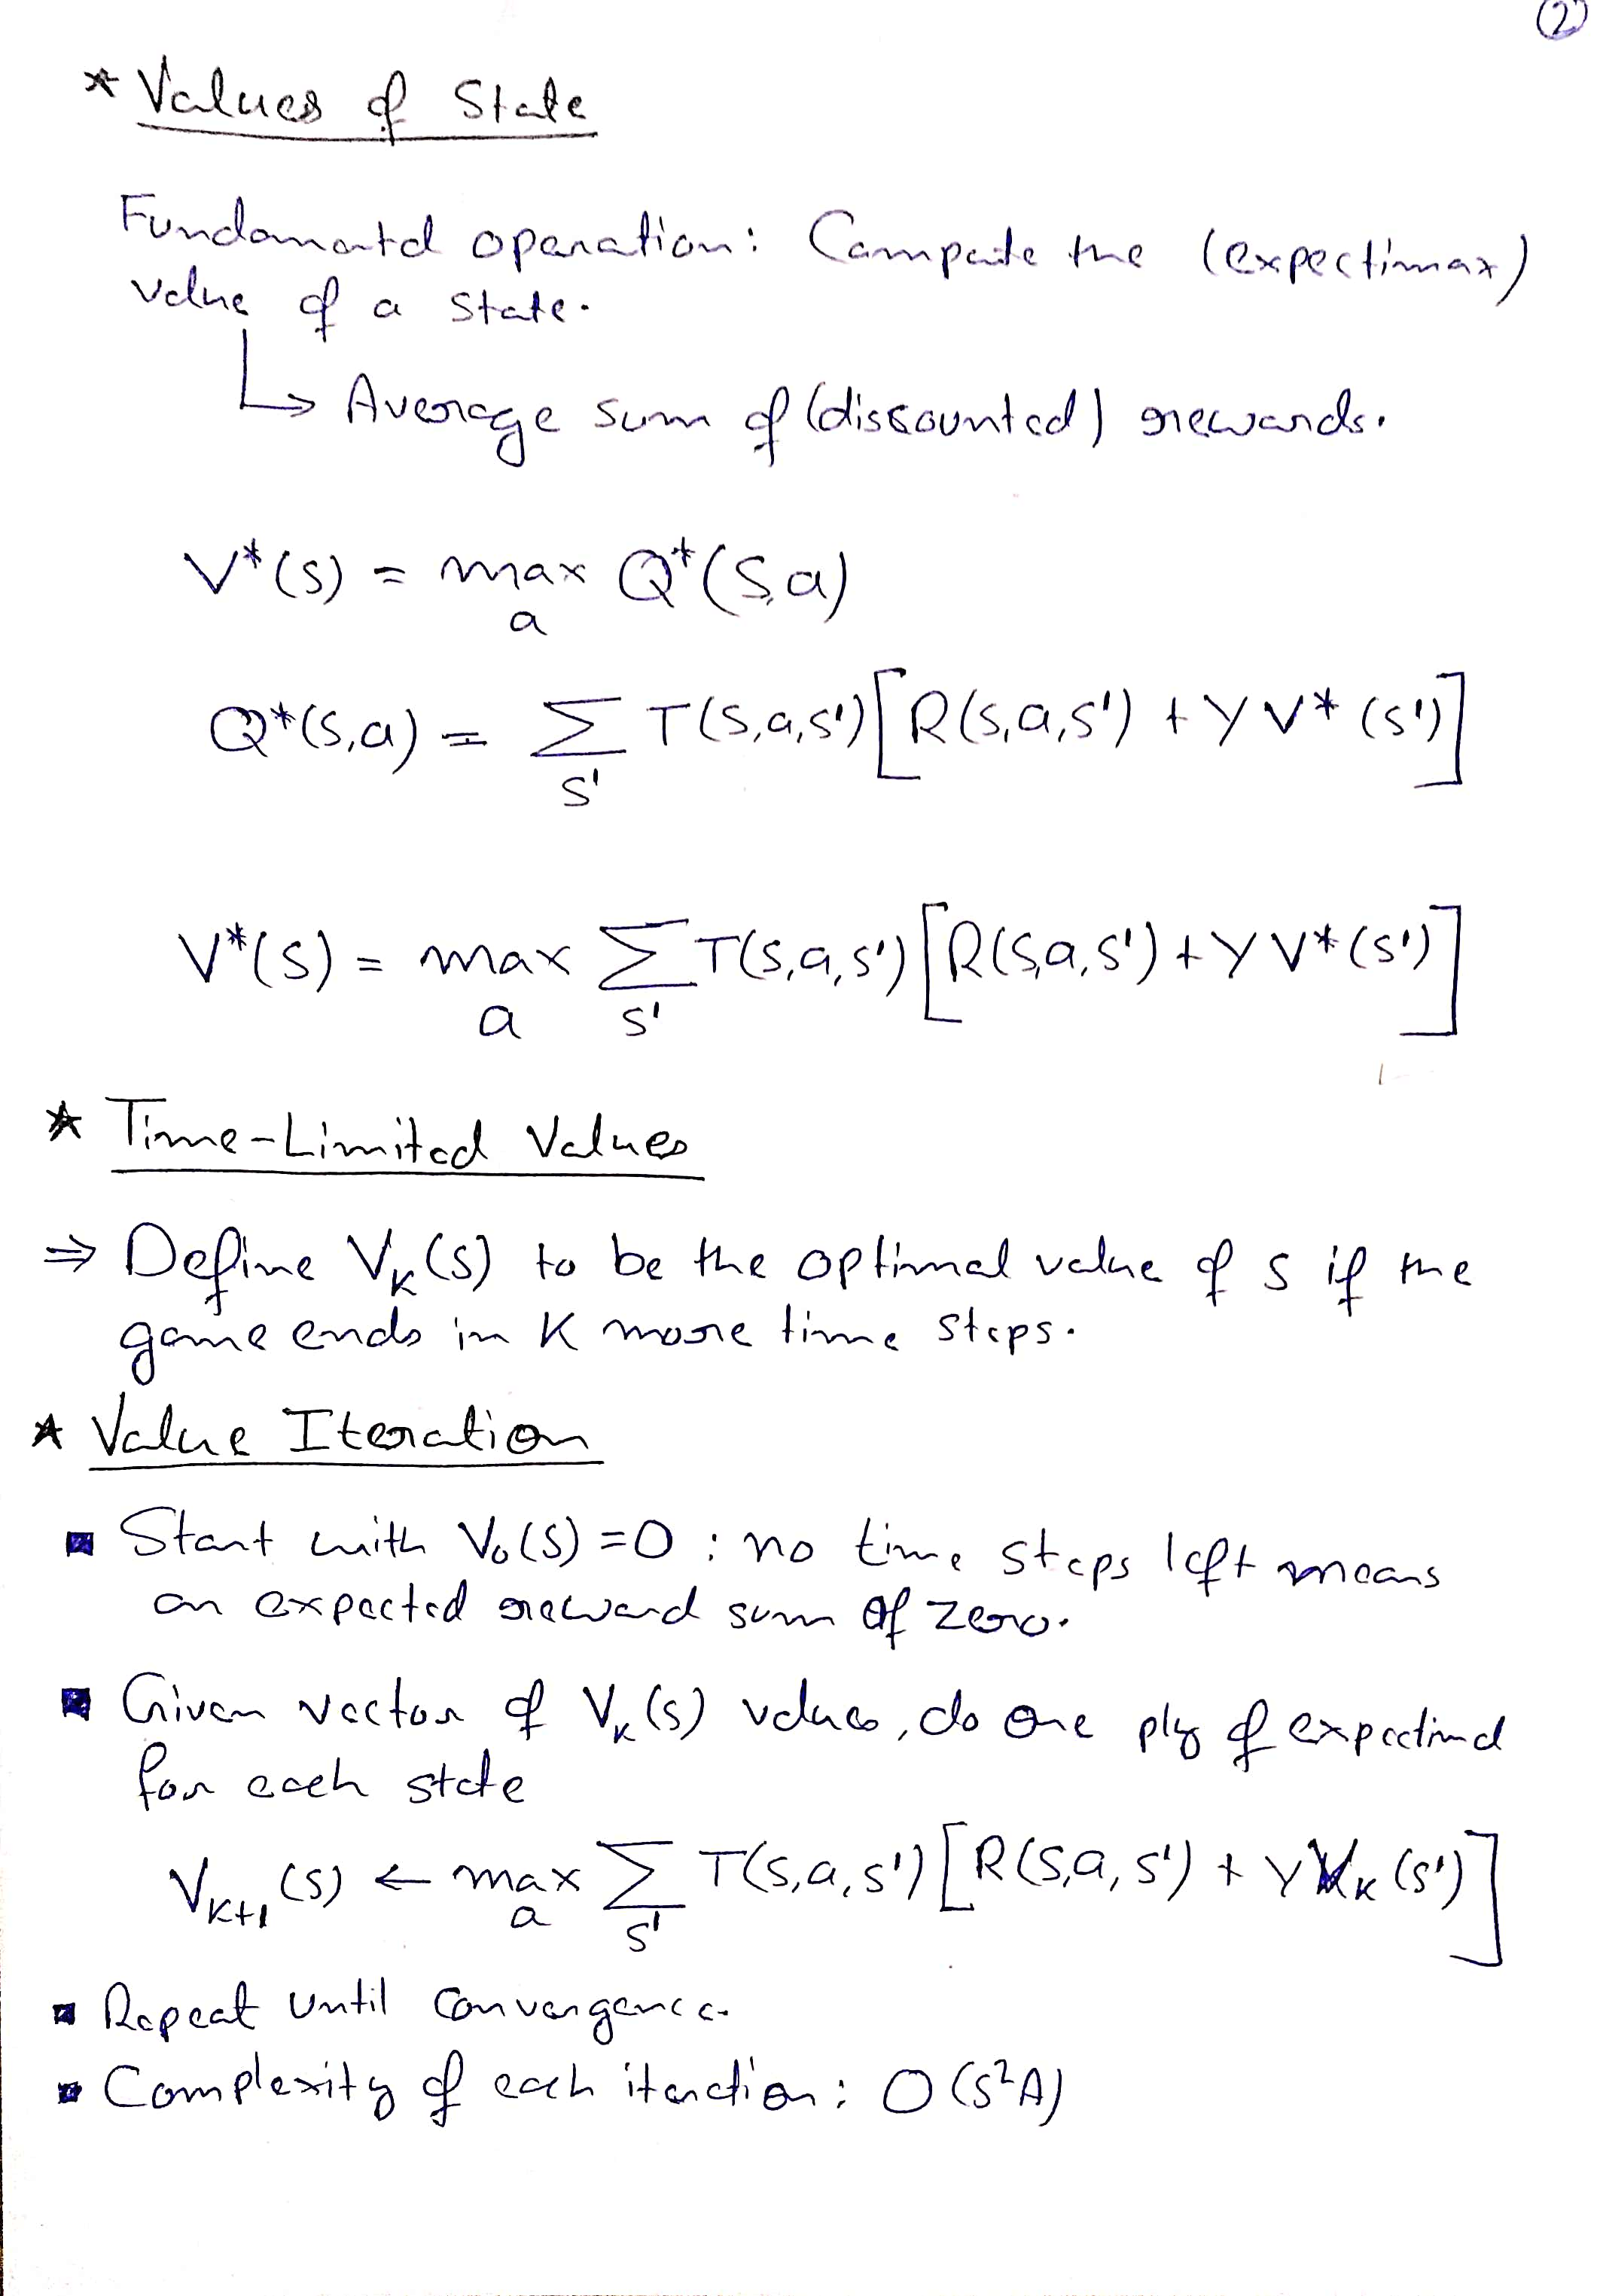 ②
* Values of State
Fundamental operation: Compute the (expectimax)
value of a state.
↳ Average sum of (discounted) rewards.
V*(s) = max Q*(s,a)
a
Q*(s,a) = Σ T(s,a,s') [R(s,a,s') + γ V*(s')]
s'
V*(s) = max Σ T(s,a,s') [R(s,a,s') + γ V*(s')]
a s'
* Time-Limited Values
⇒ Define Vₖ(s) to be the optimal value of s if the
game ends in K more time steps.
* Value Iteration
▪ Start with V₀(s) = 0 : no time steps left means
an expected reward sum of zero.
▪ Given vector of Vₖ(s) values, do one ply of
for each state
Vₖ₊₁(s) ← max Σ T(s,a,s') [R(s,a,s') + γ Vₖ(s')]
a s'
▪ Repeat until convergence.
▪ Complexity of each iteration: O(S²A)